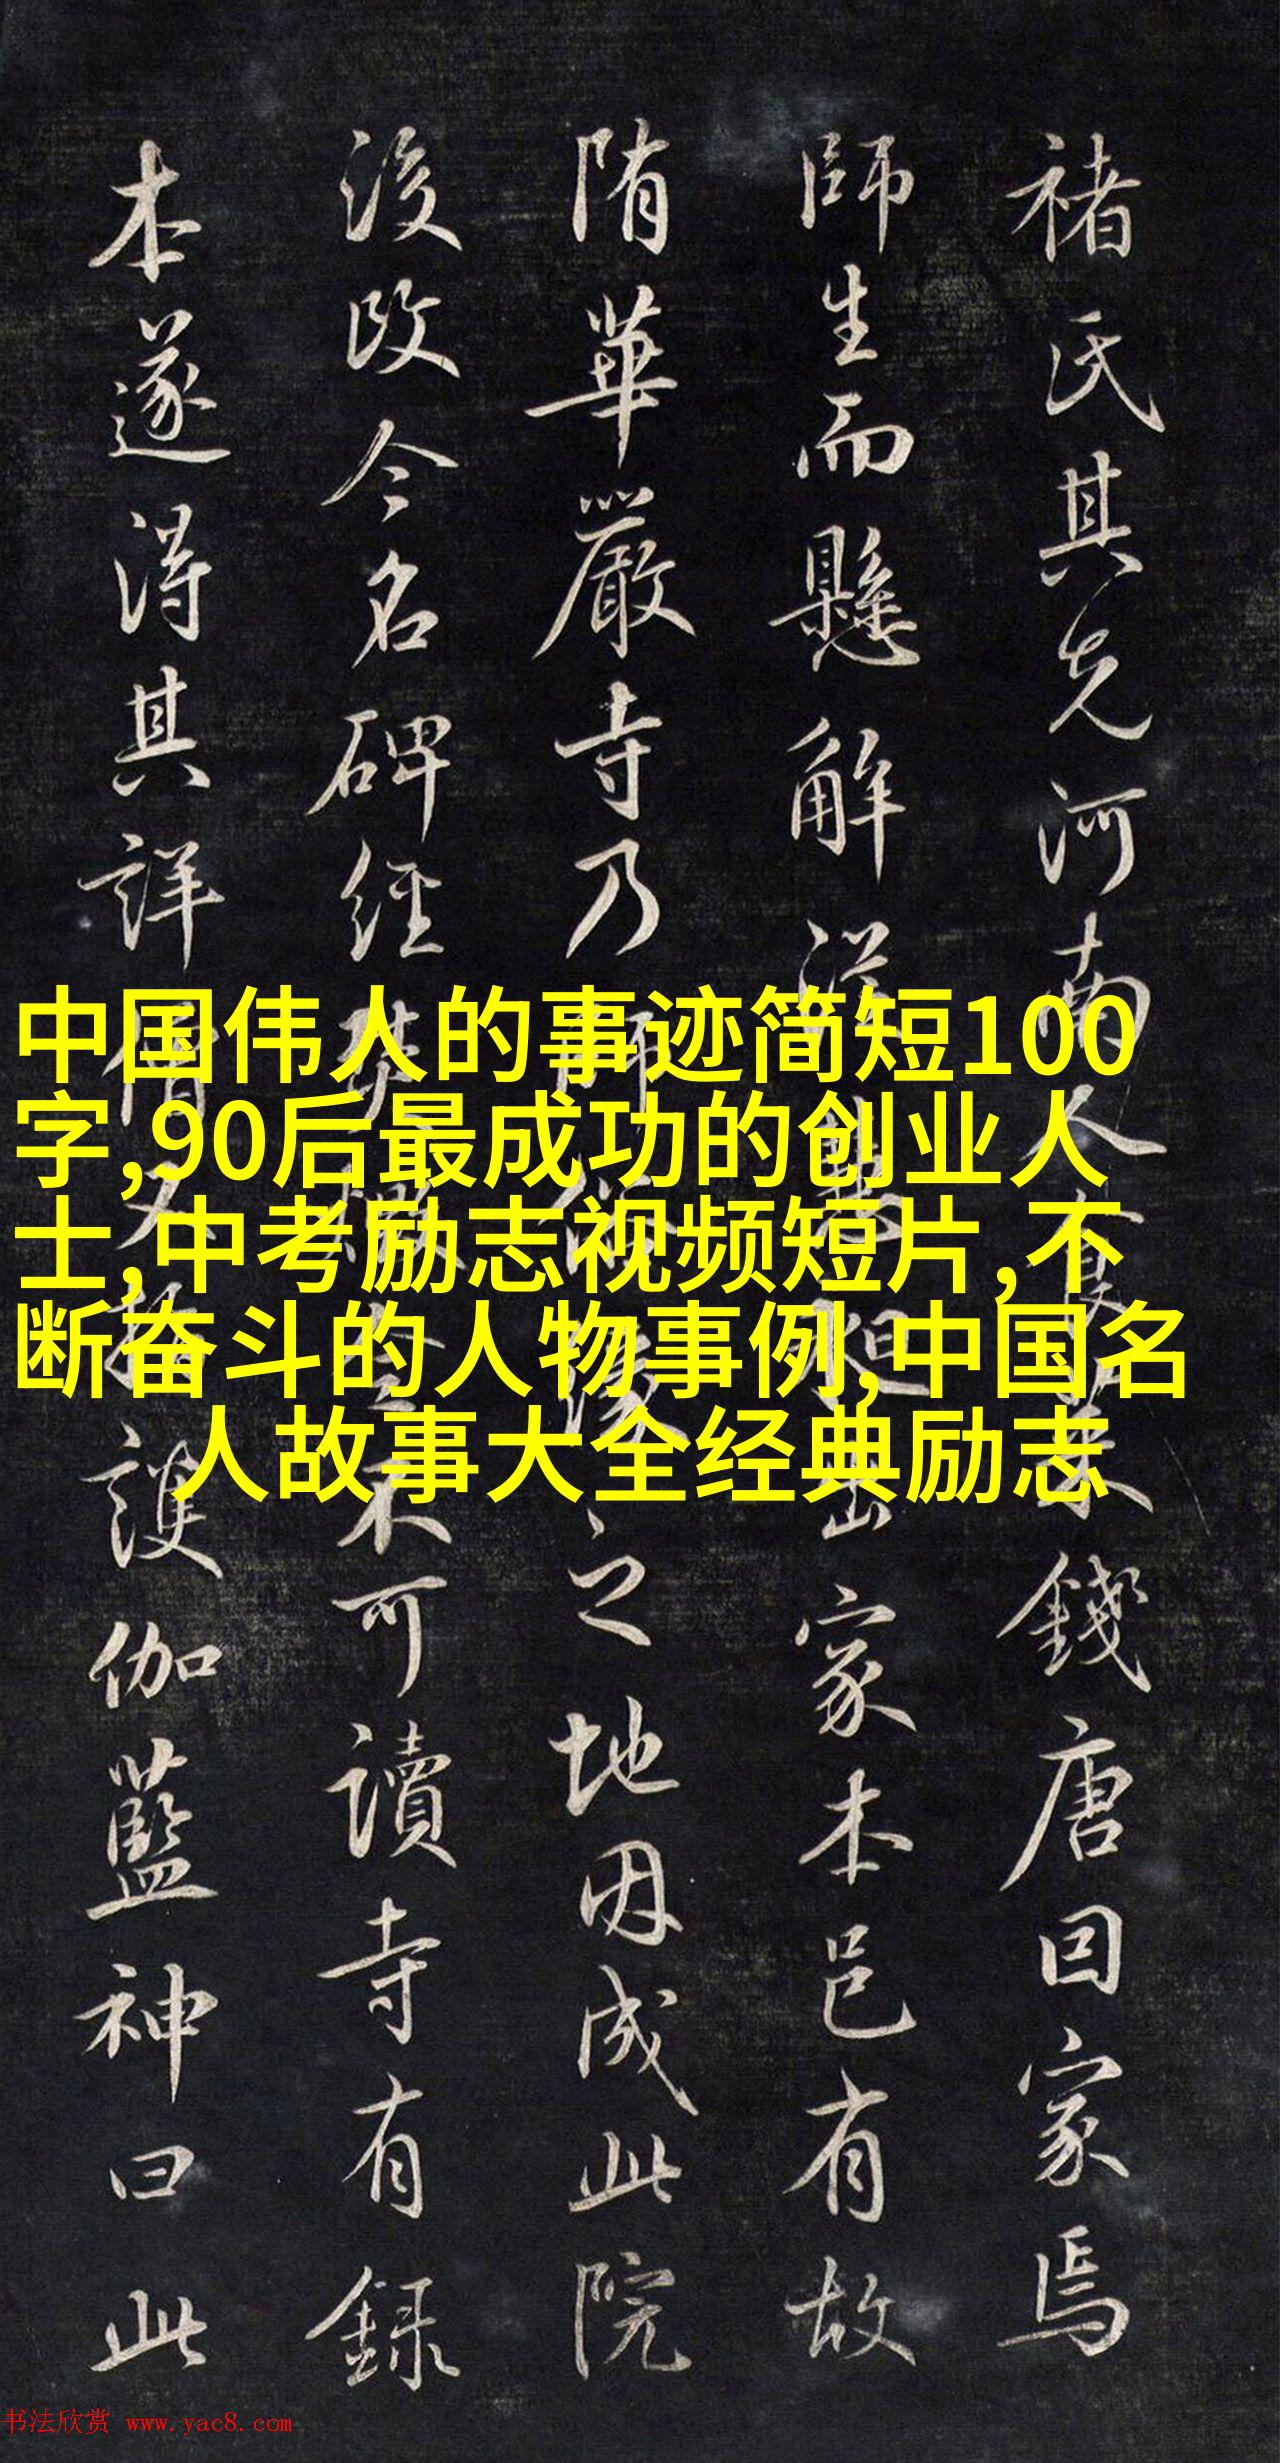 褚氏其先河南人
錢唐回家焉
師生而懸解
家本邑有故
隋華嚴寺乃師
之地因成此院
後改今名碑經
不可讀寺有録
本遂得其詳
護伽藍神曰此
中国伟人的事迹简短100
字,90后最成功的创业人
士,中考励志视频短片,不
断奋斗的人物事例,中国名
人故事大全经典励志
书法欣赏 www.yac8.com